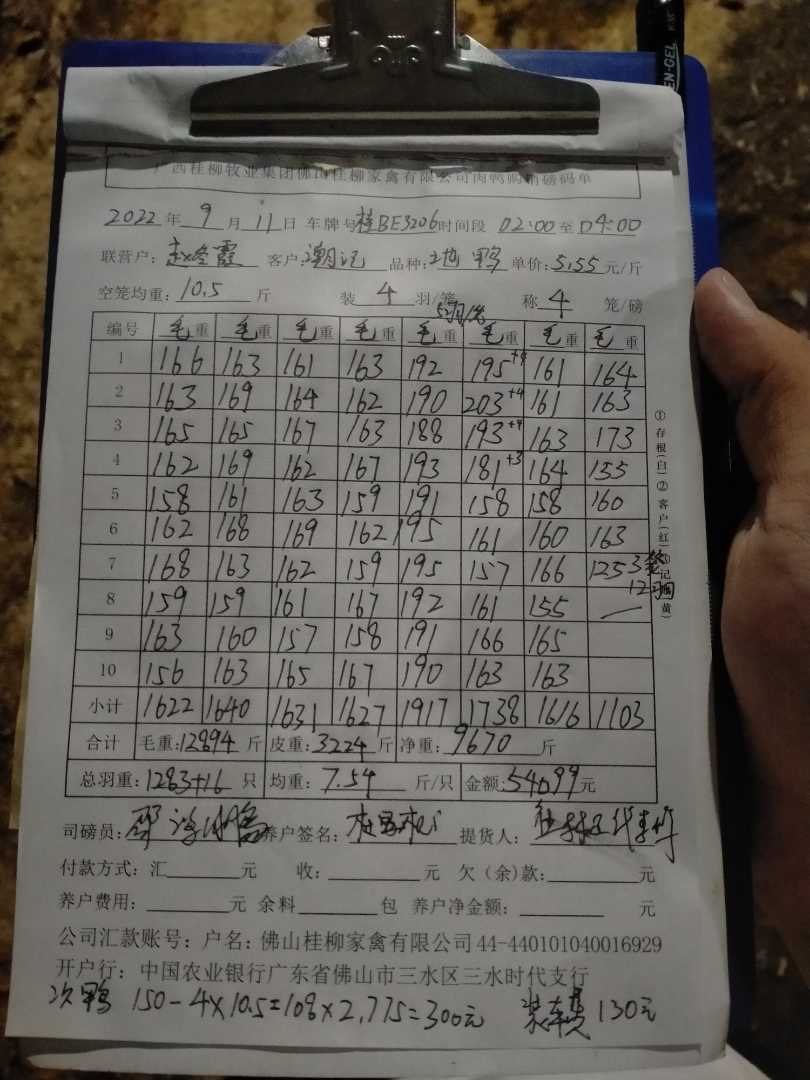 广西桂柳牧业集团佛山桂柳家禽有限公司肉鸭购销磅码单
2022年9月11日 车牌号桂BE3206时间段 02:00至04:00
联营户：赵冬霞 客户：潮记 品种：2地鸭 单价：5.55元/斤
空笼均重：10.5斤 装4羽/笼 称4笼/磅
5羽/笼
编号 毛重 毛重 毛重 毛重 毛重 毛重 毛重 毛重
1 166 163 161 163 192 195+4 161 164
2 163 169 164 162 190 203+4 161 163
3 165 165 167 163 188 193+4 163 173
4 162 169 162 167 193 181+3 164 155
5 158 161 163 159 191 158 158 160
6 162 168 169 162 195 161 160 163
7 168 163 162 159 195 157 166 125 3笼
12羽
8 159 159 161 167 192 161 155 —
9 163 160 157 158 191 166 165
10 156 163 165 167 190 163 163
小计 1622 1640 1631 1627 1917 1738 1616 1103
合计 毛重：12894斤 皮重：3224斤 净重：9670斤
总羽重：1283+16只 均重：7.54斤/只 金额：54099元
司磅员： 养户签名： 提货人：
付款方式：汇____元 收：____元 欠（余）款：____元
养户费用：____元 余料____包 养户净金额：____元
公司汇款账号：户名：佛山桂柳家禽有限公司44-440101040016929
开户行：中国农业银行广东省佛山市三水区三水时代支行
次鸭 150-4×10.5=108×2.775=300元 装车费130元
①存根(白)②客户(红)③记 黄)
EN-GEL